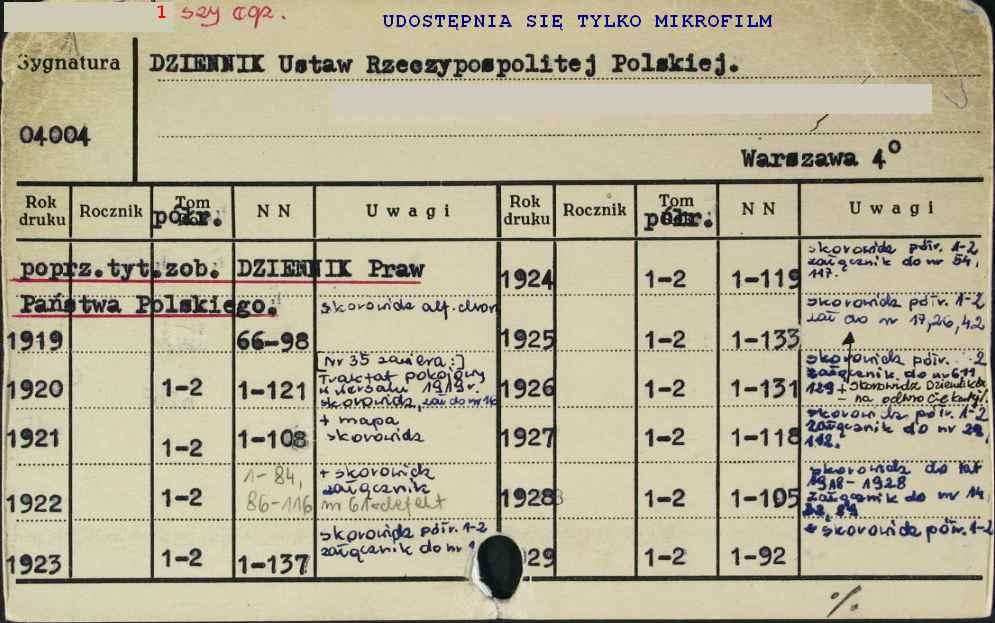 1 szy egz.
UDOSTĘPNIA SIĘ TYLKO MIKROFILM
Sygnatura
DZIENNIK Ustaw Rzeczypospolitej Polskiej.
04004
Warszawa 4°
Rok druku Rocznik Tom półr. NN Uwagi Rok druku Rocznik Tom półr. NN Uwagi
poprz.tyt.zob. DZIENNIK Praw
Państwa Polskiego.
1919 66-98 skorowidz alf. chron
1920 1-2 1-121 [Nr 35 zawiera:]
Traktat pokojowy
w Wersalu 1919 r.
skorowidz, zał do nr
1921 1-2 1-108 + mapa
skorowidz
1922 1-2 1-84,
86-116 + skorowidz
załącznik
nr 61-defekt
1923 1-2 1-137 skorowidz półr. 1-2
załącznik do nr
1924 1-2 1-119 skorowidz półr. 1-2
załącznik do nr 54,
117.
1925 1-2 1-133 skorowidz półr. 1-2
zał do nr 17,26,42
1926 1-2 1-131 skorowidz półr. -2
załącznik do nr
129 + skorowidz
- na odwrocie karty.
1927 1-2 1-118 skorowidz półr. 1-2
załącznik do nr
112.
1928 1-2 1-105 skorowidz do lat
1918-1928
załącznik do nr 14,
29 1-2 1-92 + skorowidz półr. 1-2
%